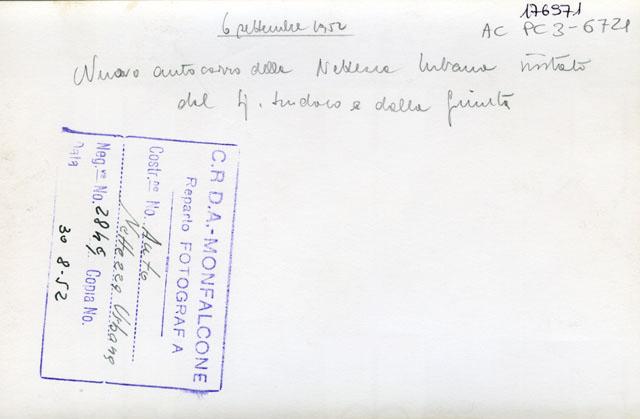 176971
AC PC3-6721
6 settembre 1952
Nuovo autocarro della Nettezza Urbana visitato
dal Sig. Sindaco e dalla Giunta
C.R.D.A.-MONFALCONE
Reparto FOTOGRAFIA
Costr.ne No. Auto
Nettezza Urbana
Neg.vo No. 2845 Copia No.
Data 30 8-52